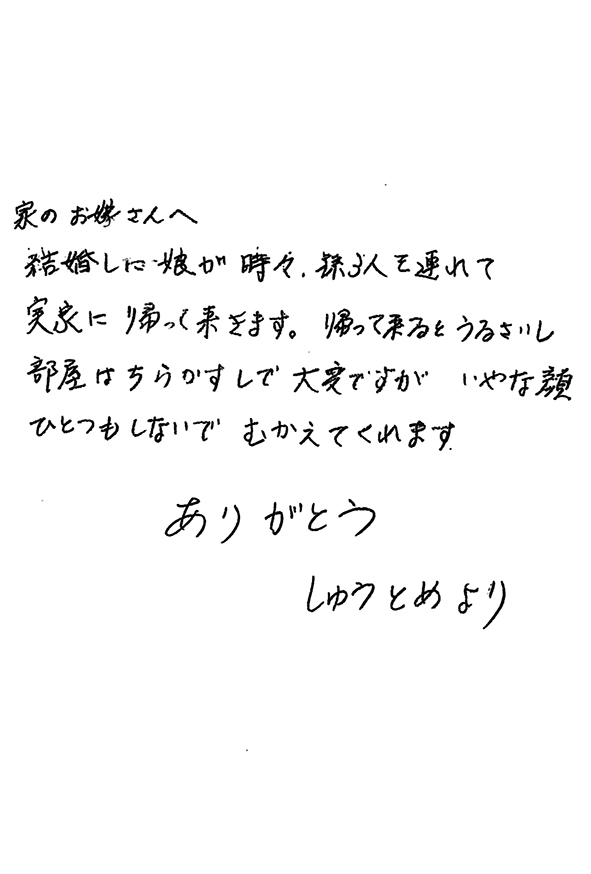 家のお嫁さんへ
結婚した娘が時々、孫3人を連れて
実家に帰って来ます。帰って来るとうるさいし
部屋はちらかすしで大変ですが いやな顔
ひとつもしないで むかえてくれます
ありがとう
しゅうとめより